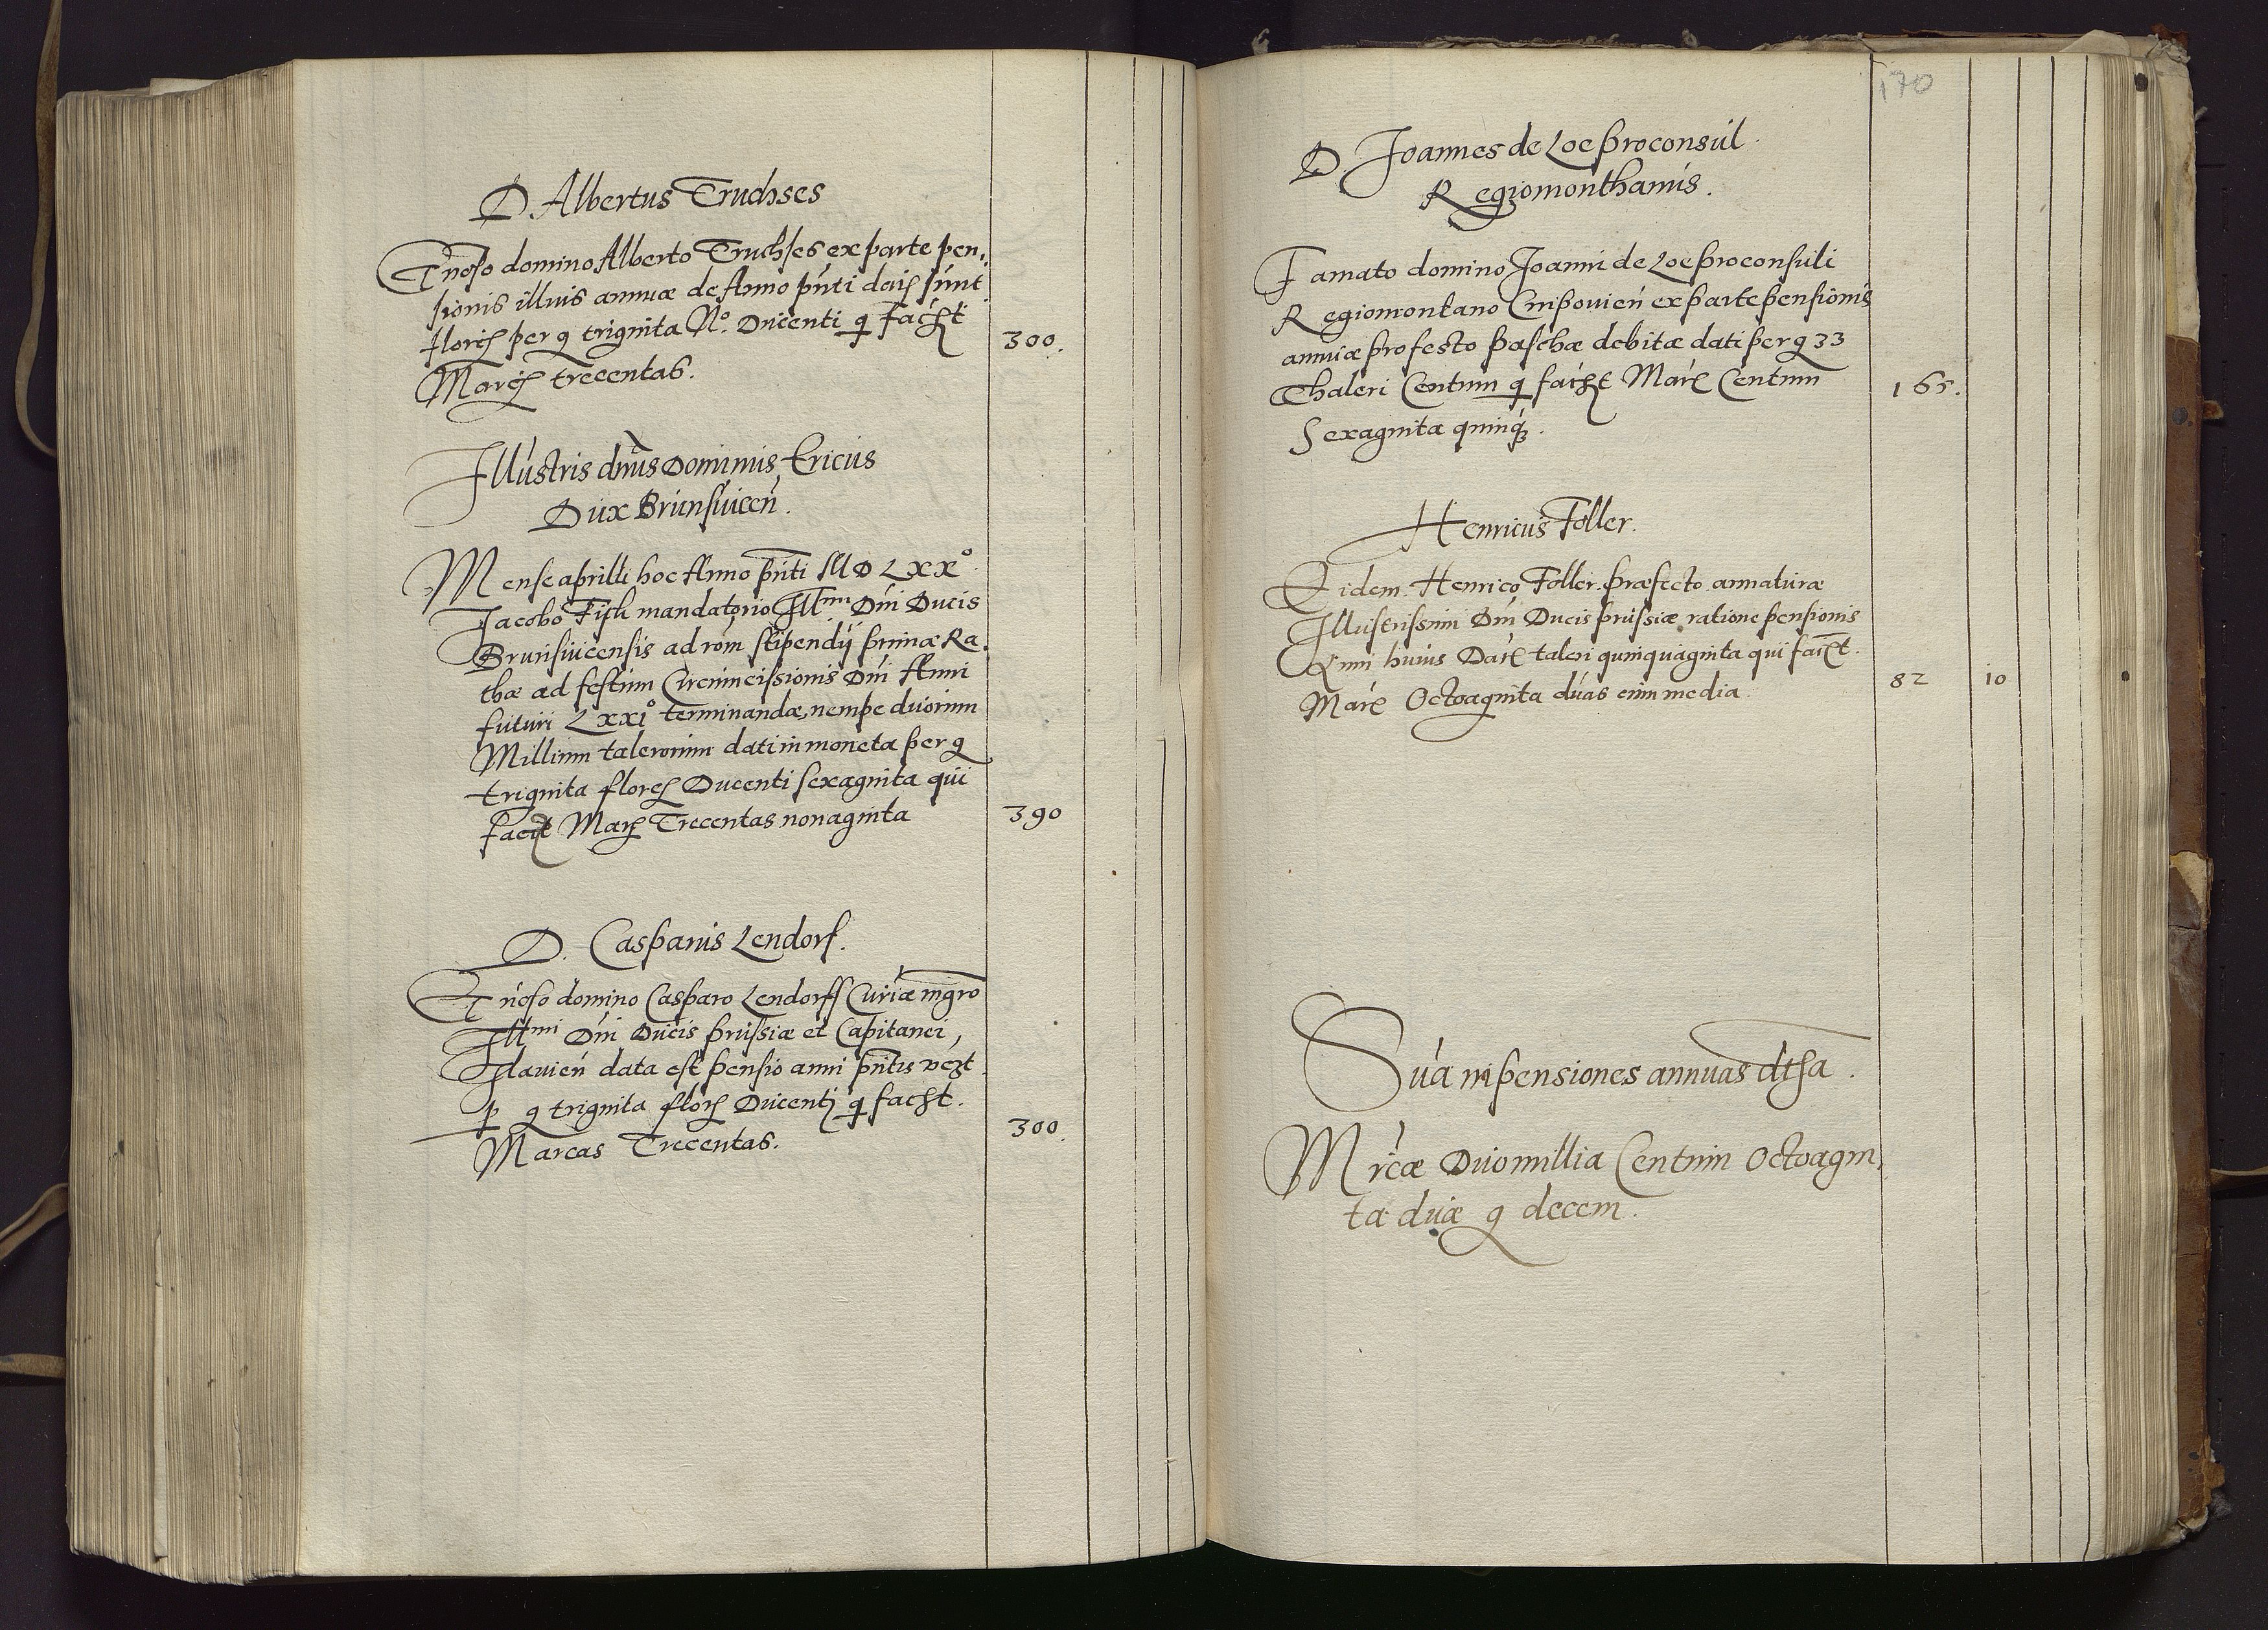 D. Albertus Truchses
Gnoso domino Alberto Truchses ex parte pen,
sionis illius annuæ de Anno pñti dati sunt
floreñ per g trigintæ N° Ducenti q faciũt
Marcas trecentas. 300.
Illustris dñus Dominus Ericus
Dux Brunsuiceñ.
Mense aprilli hoc Anno pñti MDLXX°
Jacobo Fisch mandatorio Illmi Dñi Ducis
Brunsuicensis ad rom stipendÿ primæ Ra.
thæ ad festum Circumcissionis Dñi Anni
futuri LXXI° terminandæ, nempe duorum
Millium talerorum dati in moneta per g
triginta floreñ Ducenti sexaginta qui
faciũt Marc Trecentas nonaginta 390
D. Casparus Lendorf.
Gnoso domino Casparo Lendorff Curiæ mgro
Illmi Dñi Ducis prussiæ et Capitanei
Ilauień data est pensio anni pñtis
p g triginta floreñ Ducenti q faciũt.
Marcas Trecentas. 300.
170
D Joannes de Loe proconsul.
Regiomonthanus.
Famato domino Joanni de Loe proconsuli
Regiomontano Cnipouień ex parte pensionis
annuæ pro festo paschæ debitæ dati per g 33
Thaleri Centum q faciũt Marc Centum 165.
Sexaginta quinq3.
Henricus Foller.
Eidem Henrico Foller præfecto armaturæ
Illustrissimi Dñi Ducis prussiæ ratione pensionis
Anni huius Dati taleri quinquaginta qui faciũt.
Marc Octoaginta duas cum media. 82 10
Sũa in pensiones annuas dtsa.
Mrcæ Duo millia Centum Octoagin,
ta duæ g decem.